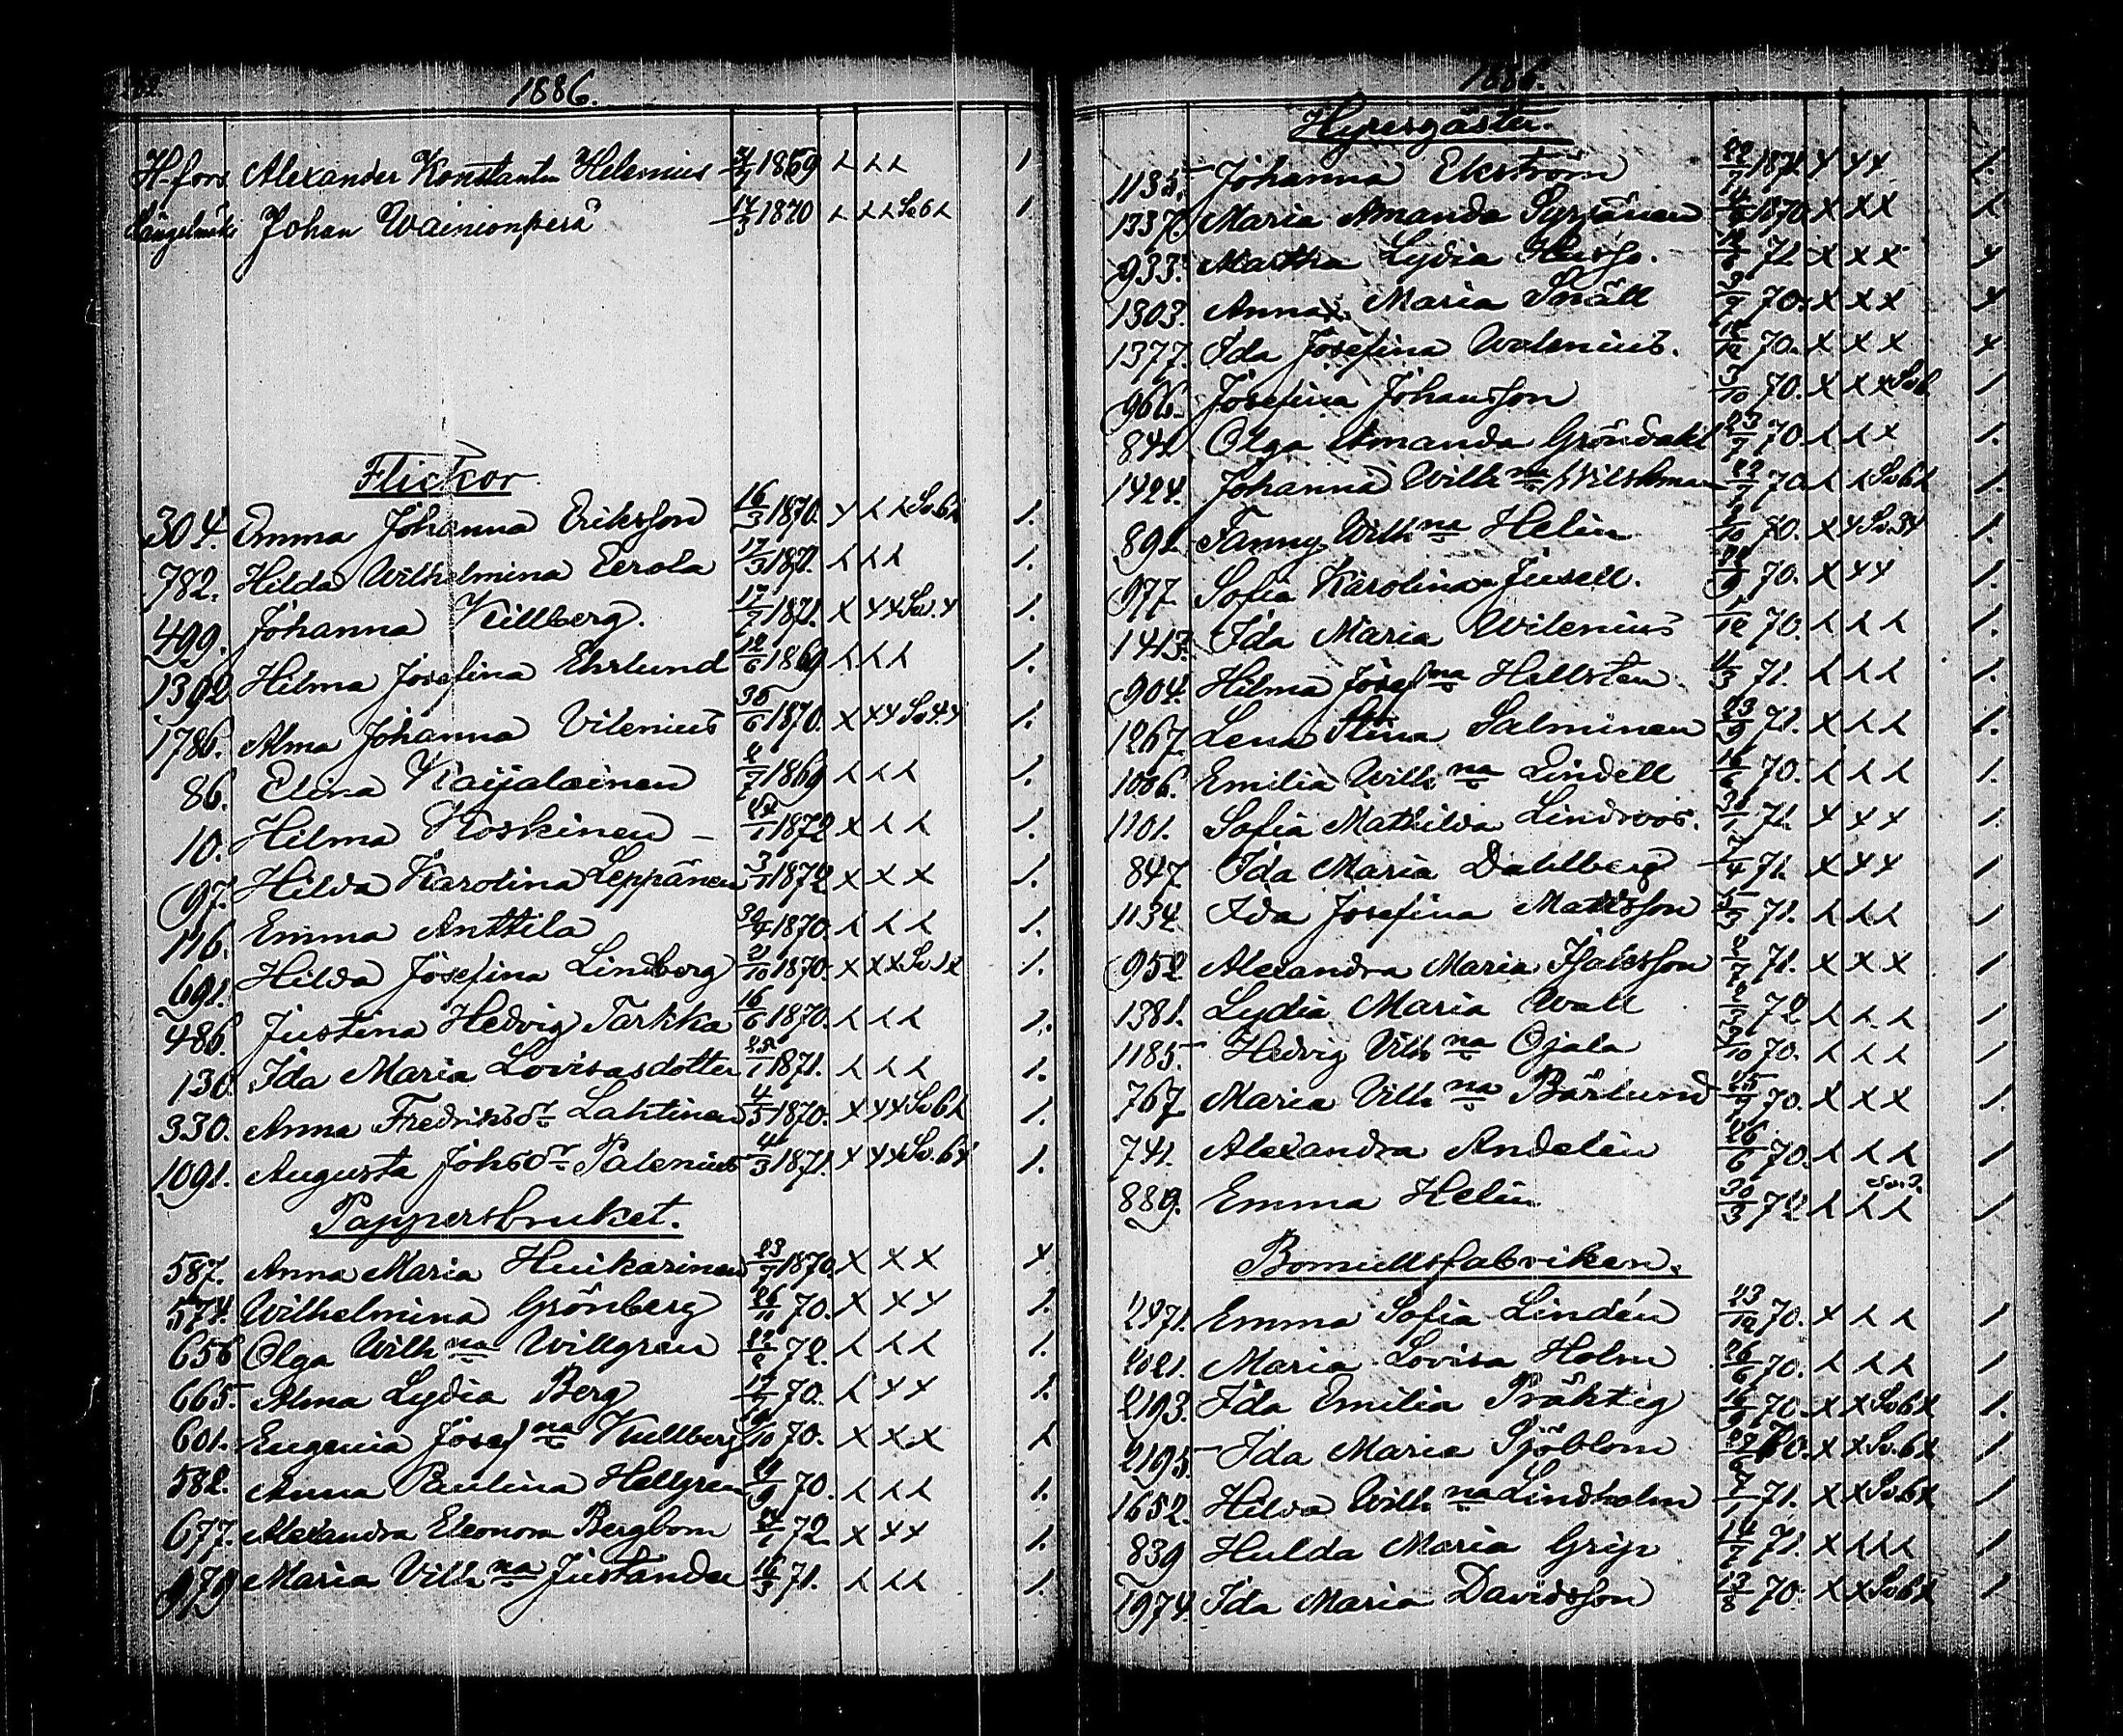 1886.
H-fors Alexander Konstantin Helenius 1869 1.
Längelmäki Johan Wainionperä 17/3 1870 Sv 6 1.
Flickor
304. Emma Johanna Eriksson 16/3 1870. x Sv. 6 1.
782. Hilda Wilhelmina Eerola 17/3 1871. 1.
499. Johanna Killberg. 17/7 1871. x x x Sv. 4 1.
1392 Hilma Josefina Ehrlund 12/6 1869 1.
1786. Alma Johanna Vilenius 30/6 1870. x x x Sv 4. x 1.
86. Elina Kaijalainen 2/7 1869 1.
10. Hilma Koskinen – 24/1 1872 x 1.
97. Hilda Karolina Leppänen 3/1 1872 x x x 1.
116. Emma Anttila 30/4 1870. 1.
691. Hilda Josefina Lindberg 21/10 1870. x x x Sv 1 x 1.
486. Justina Hedvig Tarkka 16/6 1870. 1.
130. Ida Maria Lovisasdotter 25/1 1871. 1.
330. Anna Fredriksdr Lahtinen 4/5 1870. x x x Sv 6 1.
1091. Augusta Johsdr Palenius 4/3 1871. x x x Sv. 6 x 1.
Pappersbruket.
587. Anna Maria Huikarinen 23/7 1870. x x x x
574. Wilhelmina Grönberg 26/11 70. x x x 1.
656 Olga Wilhna Willgren 22/2 72. 1.
665. Alma Lydia Berg 17/7 70. x x 1.
601. Eugenia Josefna Kullberg /10 70. x x x
582. Anna Paulina Hellgren /9 70. 1.
677. Alexandra Eleonora Bergbom 24/1 72. x x x 1.
979 Maria Vilhna Justander 16/3 71. 1.
1886.
Hyresgäster.
1135. Johanna Ekström 22/7 1871 x x x 1.
1337. Maria Amanda Syrjänen 1870 x x x
933. Martha Lydia Husso. 72 x x x x
1303. Anna Maria Snäll /9 70. x x x x
1377. Ida Josefina Walenius. /12 70. x x x x
966. Josefina Johansson 3/10 70. x x x Sv 6 1.
842 Olga Amanda Gröndahl 23/7 70. x 1.
1424. Johanna Wilhna Wilskman 22/7 70. Sv 6 1.
892 Fanny Wilhna Helin /10 70. x x Sv. 3 x 1.
977 Sofia Karolina Jusell. /9 70. x x x 1.
1413. Ida Maria Wilenius 1/12 70. 1.
904. Hilma Josefna Hellsten 11/3 71. 1.
1267 Lena Stina Salminen 23/9 71. x 1.
1006. Emilia Wilhna Lindell 16/6 70. 1.
1101. Sofia Mathilda Lindroos. 31/1 71. x x x 1.
847 Ida Maria Dahlberg /4 71. x x x 1
1134 Ida Josefina Mattsson /3 71. 1
952 Alexandra Maria Isaksson 71. x x x 1
1381. Lydia Maria Wall 72 1
1185 Hedvig Vilhna Ojala /10 70. 1
767 Maria Vilhna Bärlund 25/9 70. x x x 1
741. Alexandra Andelin 26/6 70. 1
889. Emma Helin 30/3 72 Sv. 3. 1
Bomullsfabriken.
2971. Emma Sofia Lindén 23/12 70. x 1
2021. Maria Lovisa Holm 26/6 70. 1
2193. Ida Emilia Präktig 16/9 70. x x Sv 6 x 1.
2195 Ida Maria Sjöblom 70. x x Sv. 6 x 1
1652. Hilda Wilhna Lindholm /1 71. x x Sv. 6 x 1
839 Hulda Maria Grip 14/2 71. x 1
1974. Ida Maria Davidsson 13/8 70. x x Sv 6 x 1